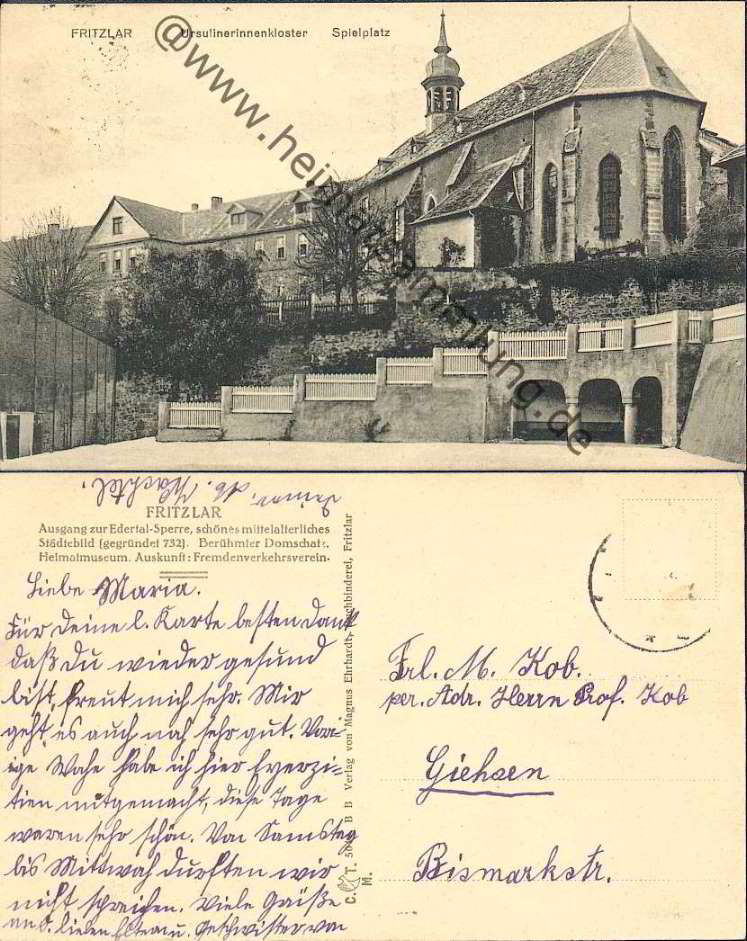 FRITZLAR Ursulinerinnenkloster Spielplatz
@www.heimatsammlung.de
deiner, Ab. Wachtel.
FRITZLAR
Ausgang zur Edertal-Sperre, schönes mittelalterliches
Städtebild (gegründet 732). Berühmter Domschatz.
Heimatmuseum. Auskunft: Fremdenverkehrsverein.
Liebe Maria.
Für Deine l. Karte besten Dank
daß Du wieder gesund
bist, freut mich sehr. Mir
geht es auch noch sehr gut. Vori-
ge Woche habe ich hier Exerzi-
tien mitgemacht, diese Tage
waren sehr schön. Von Samstag
bis Mittwoch durften wir
nicht sprechen. Viele Grüße
an d. lieben Eltern u. Geschwister von
C. T. B B Verlag von Magnus Ehrhardt, Buchbinderei, Fritzlar
M.
Frl. M. Kob.
per. Adr. Herrn Prof. Kob
Gießen
Bismarckstr.